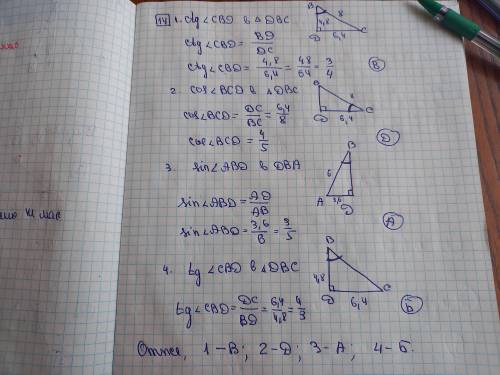 14 1. ctg∠CBD в △DBC
ctg∠CBD = BD/DC
ctg∠CBD = 4,8/6,4 = 48/64 = 3/4
В
B 8 4,8 D 6,4 C
2. cos∠BCD в △DBC
cos∠BCD = DC/BC = 6,4/8
cos∠BCD = 4/5
Д
B 8 D 6,4 C
3. sin∠ABD в DBA
sin∠ABD = AD/AB
sin∠ABD = 3,6/6 = 3/5
А
B 6 A 3,6 D
4. tg∠CBD в △DBC
tg∠CBD = DC/BD = 6,4/4,8 = 4/3
Б
B 4,8 D 6,4 C
Отже, 1–В; 2–Д; 3–А; 4–Б.